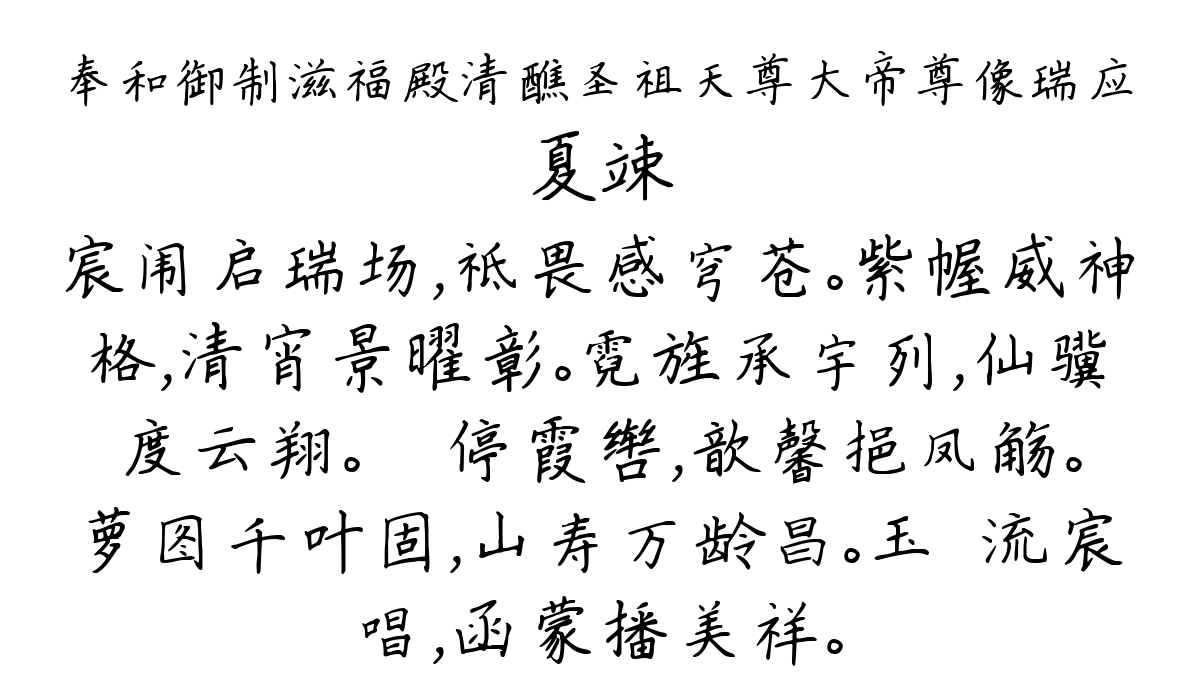 奉和御制滋福殿清醮圣祖天尊大帝尊像瑞应
夏竦
宸闱启瑞场,祗畏感穹苍。紫幄威神
格,清宵景曜彰。霓旌承宇列,仙骥
度云翔。 停霞辔,歆馨挹凤觞。
萝图千叶固,山寿万龄昌。玉 流宸
唱,函蒙播美祥。